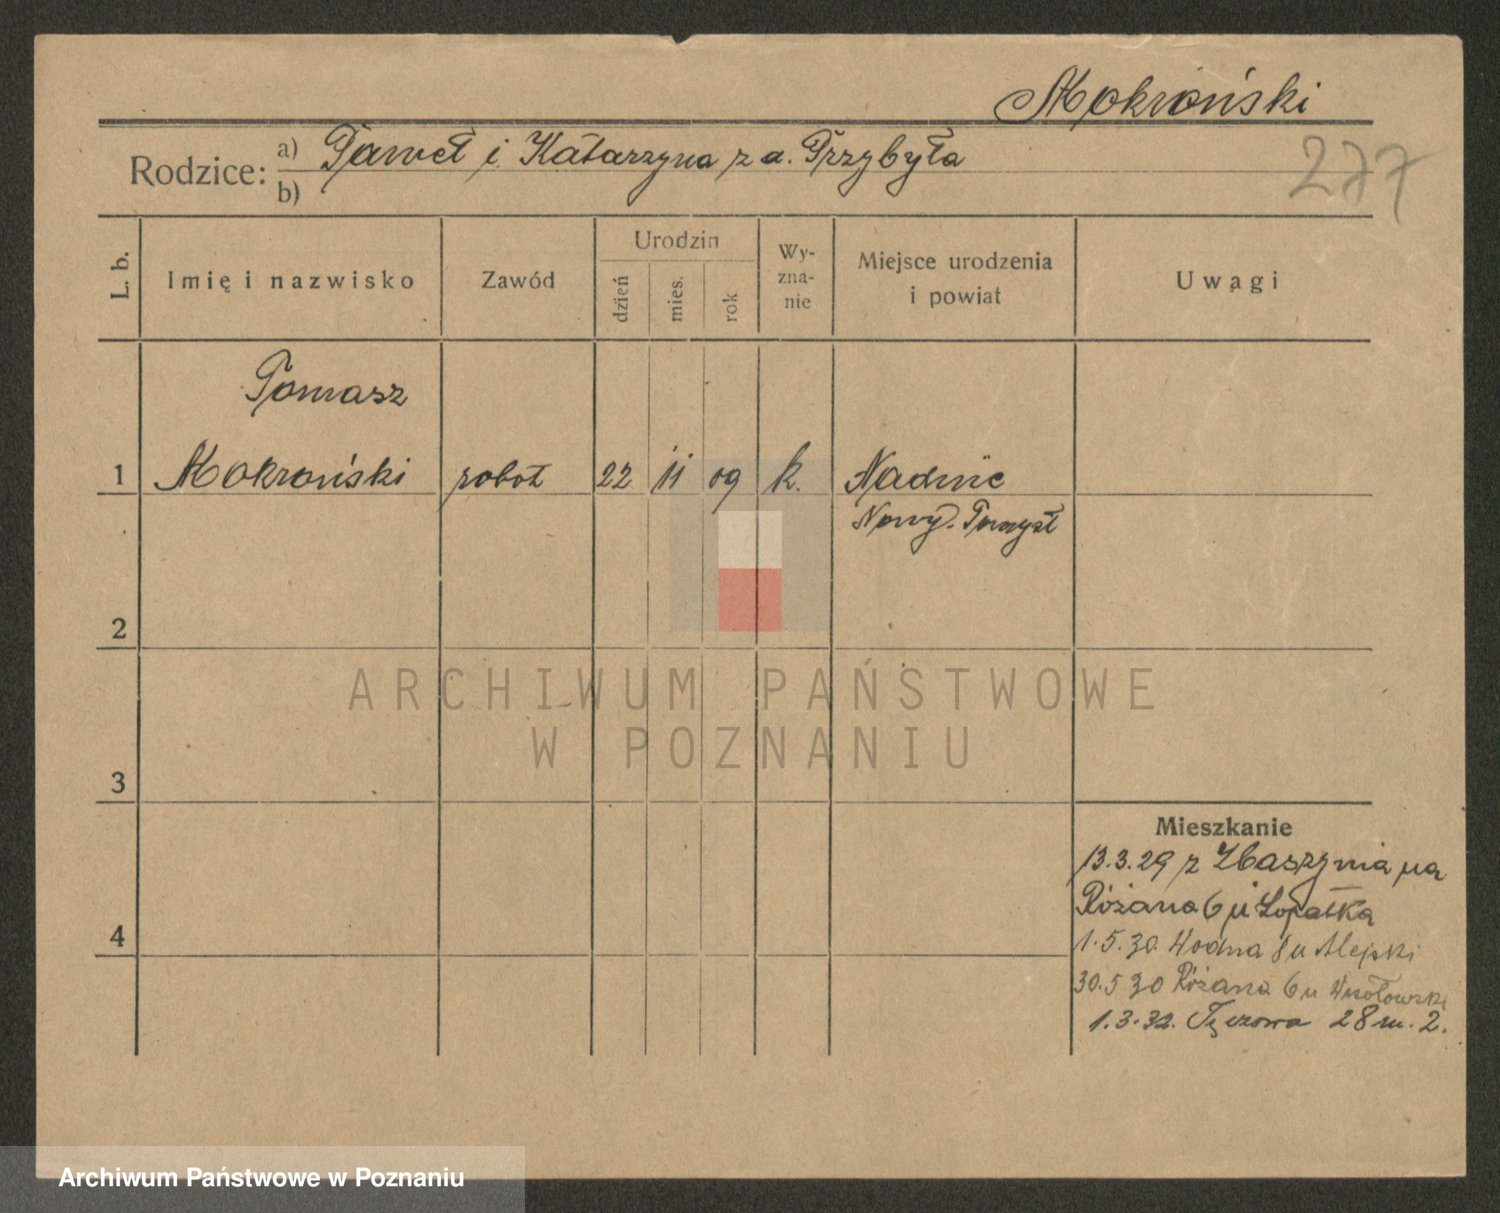 Mokroński
277
Rodzice: a) Paweł i Katarzyna z d. Przybyła
b)
L. b.
Imię i nazwisko
Zawód
Urodzin
dzień
mies.
rok
Wy-
zna-
nie
Miejsce urodzenia
i powiat
Uwagi
Tomasz
1 Mokroński robot 22 11 09 k. Nadnie
Nowy. Tomyśl
2
ARCHIWUM PAŃSTWOWE
W POZNANIU
3
Mieszkanie
13.3.29 z Zbaszynia na
Różana 6 u Łopatka
4
1.5.30 Wodna 8 u Alejski
30.5 30 Różana 6 u
1.3.32. Tęczowa 28 m. 2.
Archiwum Państwowe w Poznaniu